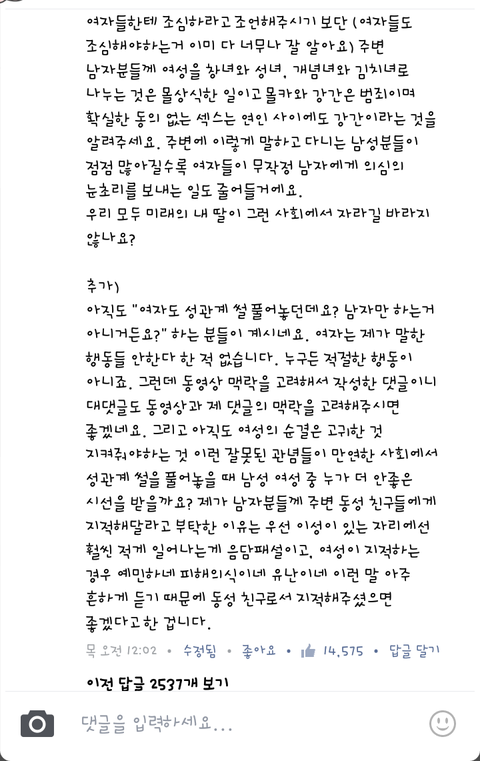 여자들한테 조심하라고 조언해주시기 보단 (여자들도
조심해야하는거 이미 다 너무나 잘 알아요) 주변
남자분들께 여성을 창녀와 성녀, 개념녀와 김치녀로
나누는 것은 몰상식한 일이고 몰카와 강간은 범죄이며
확실한 동의 없는 섹스는 연인 사이에도 강간이라는 것을
알려주세요. 주변에 이렇게 말하고 다니는 남성분들이
점점 많아질수록 여자들이 무작정 남자에게 의심의
눈초리를 보내는 일도 줄어들거에요.
우리 모두 미래의 내 딸이 그런 사회에서 자라길 바라지
않나요?
추가)
아직도 "여자도 성관계 썰 풀어놓던데요? 남자만 하는거
아니거든요?" 하는 분들이 계시네요. 여자는 제가 말한
행동들 안한다 한 적 없습니다. 누구든 적절한 행동이
아니죠. 그런데 동영상 맥락을 고려해서 작성한 댓글이니
대댓글도 동영상과 제 댓글의 맥락을 고려해주시면
좋겠네요. 그리고 아직도 여성의 순결은 고귀한 것
지켜줘야하는 것 이런 잘못된 관념들이 만연한 사회에서
성관계 썰을 풀어놓을 때 남성 여성 중 누가 더 안좋은
시선을 받을까요? 제가 남자분들께 주변 동성 친구들에게
지적해달라고 부탁한 이유는 우선 이성이 있는 자리에선
훨씬 적게 일어나는게 음담패설이고, 여성이 지적하는
경우 예민하네 피해의식이네 유난이네 이런 말 아주
흔하게 듣기 때문에 동성 친구로서 지적해주셨으면
좋겠다고한 겁니다.
목 오전 12:02 • 수정됨 • 좋아요 • 14,575 • 답글 달기
이전 답글 2537개 보기
댓글을 입력하세요...